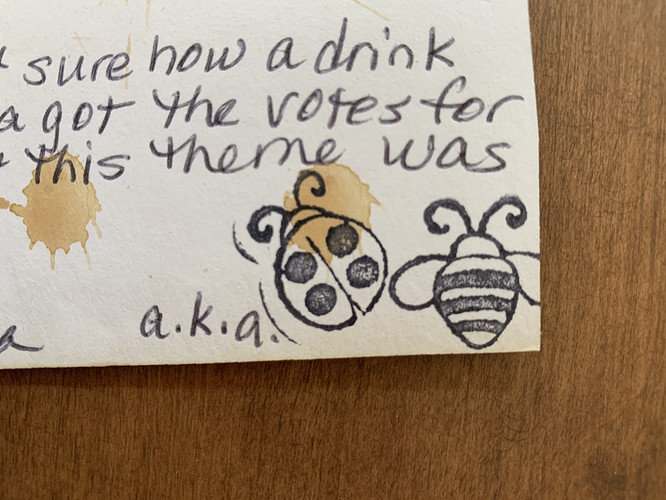 sure how a drink
a got the votes for
this theme was
a
a.k.a.